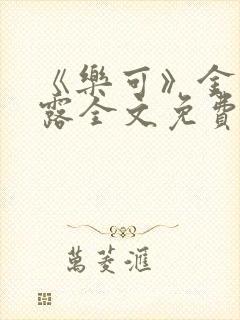 《樂可》金
露全文免費
萬菱滙